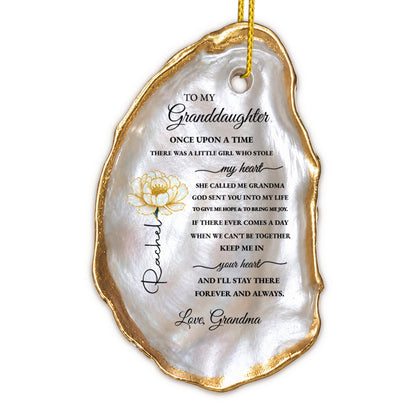 TO MY
Granddaughter
ONCE UPON A TIME
THERE WAS A LITTLE GIRL WHO STOLE
my heart
SHE CALLED ME GRANDMA
GOD SENT YOU INTO MY LIFE
TO GIVE ME HOPE & TO BRING ME JOY.
IF THERE EVER COMES A DAY
WHEN WE CAN'T BE TOGETHER
KEEP ME IN
your heart
AND I'LL STAY THERE
FOREVER AND ALWAYS.
Love, Grandma
Rachel